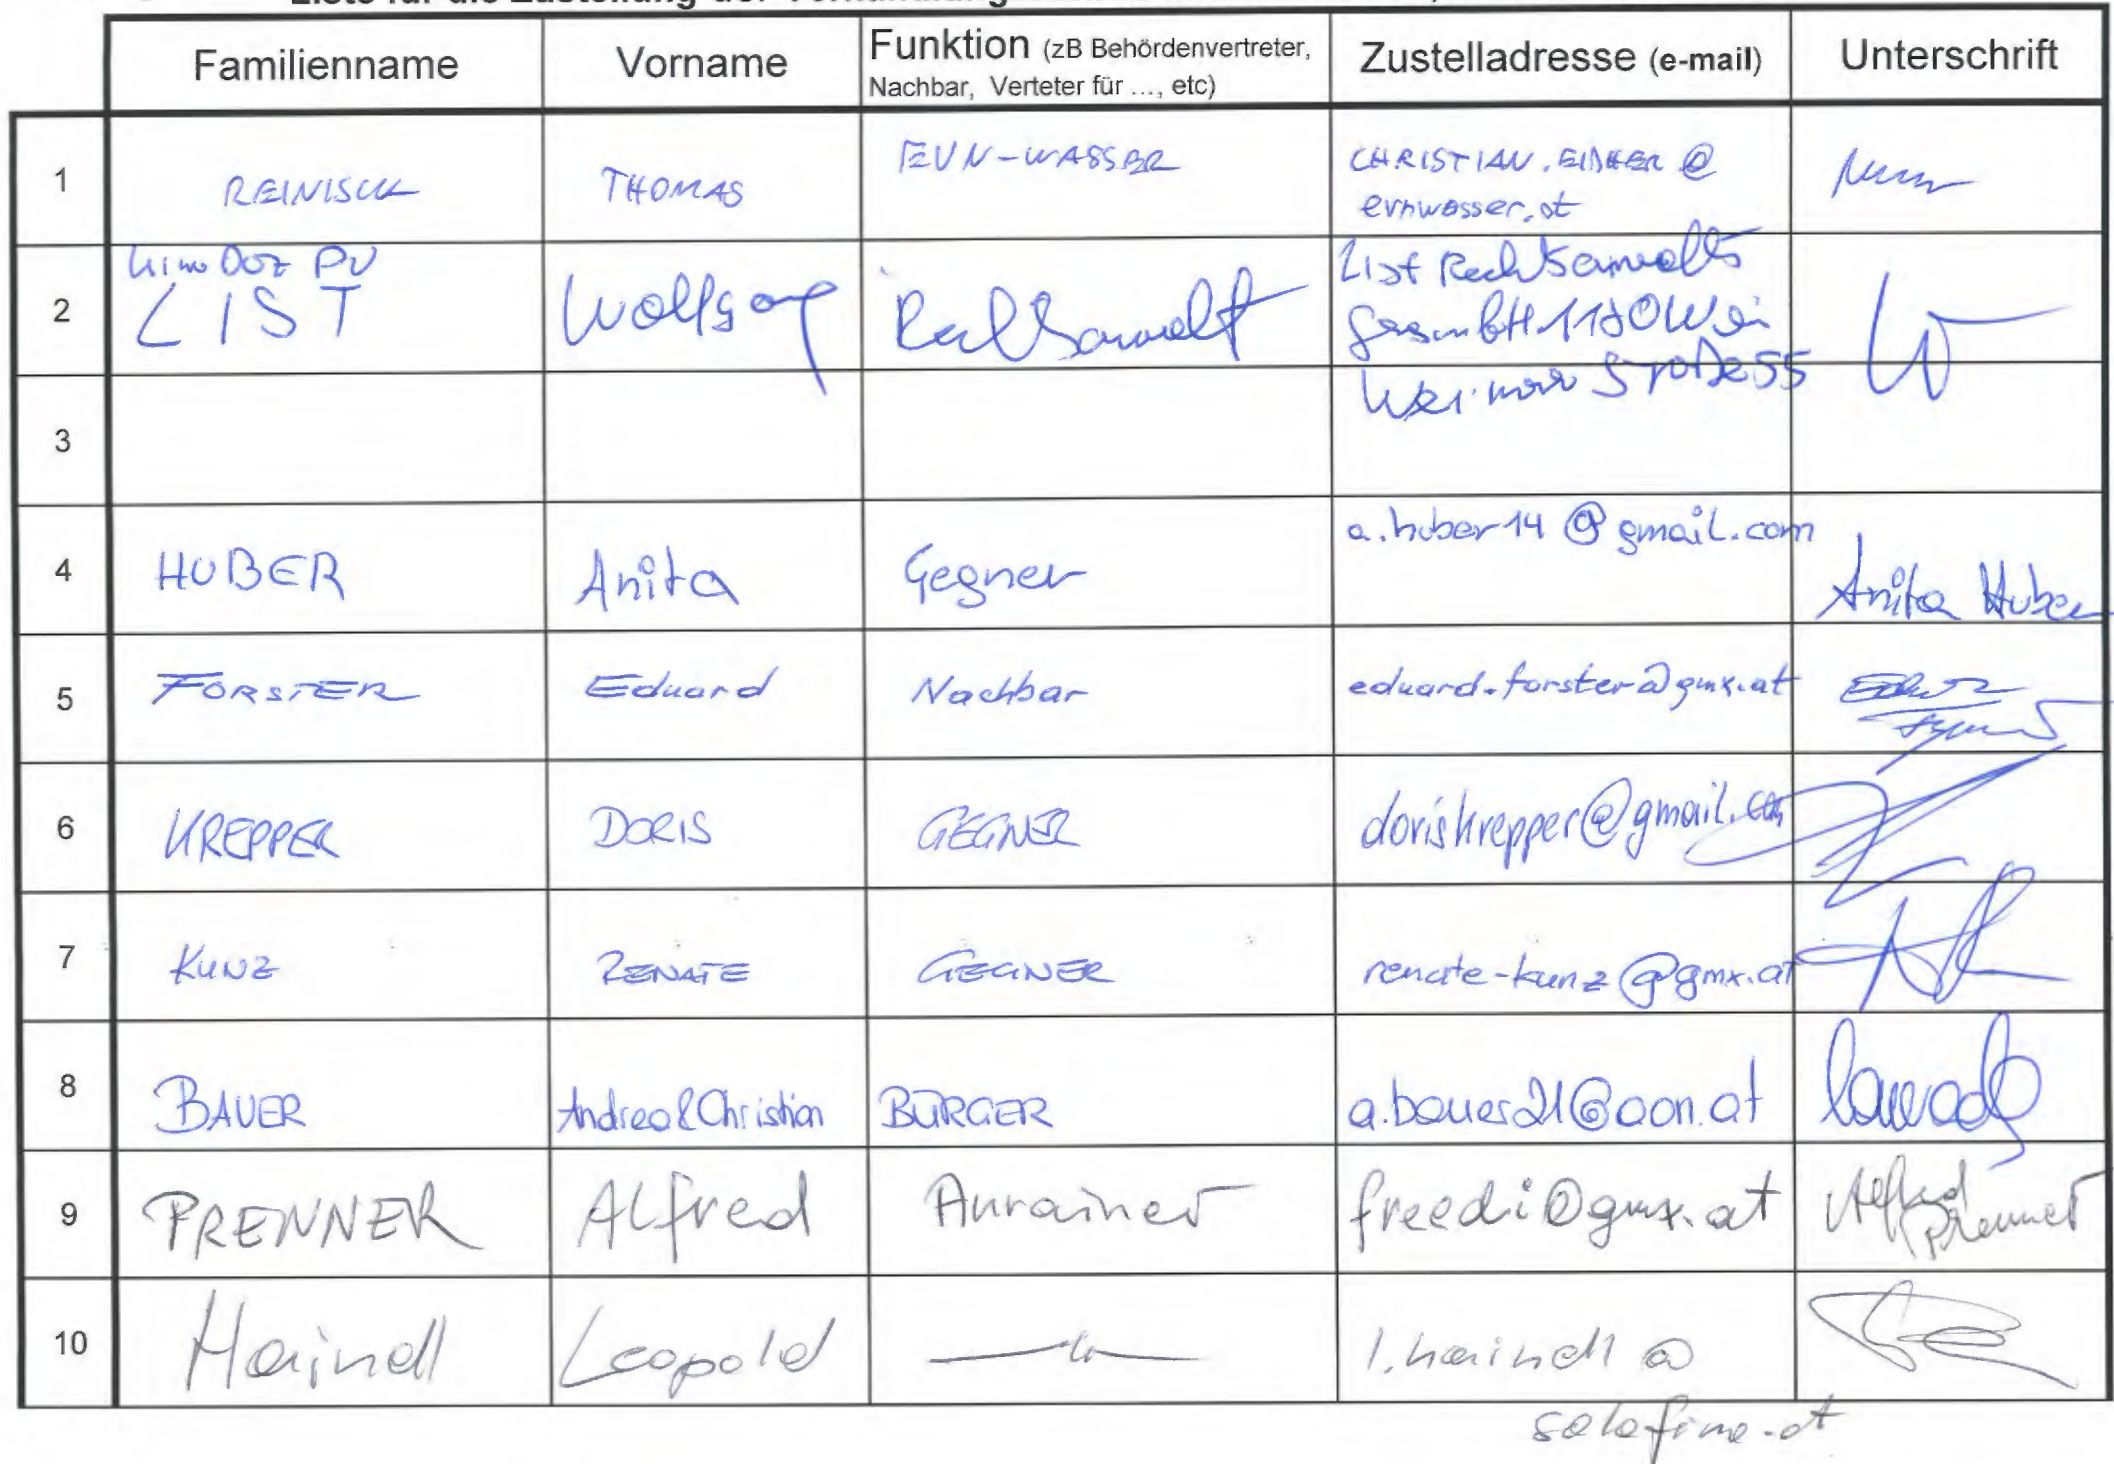 Liste für die Zustellung der Verhandlungs
Familienname Vorname Funktion (zB Behördenvertreter, Zustelladresse (e-mail) Unterschrift
Nachbar, Verteter für ..., etc)
1 REINISCH THOMAS EVN-WASSER CHRISTIAN. @
evnwasser.at
DOZ
2 LIST Wolfgang Rechtsanwalt List Rechtsanwalts
GesmbH 1180 Wien
Weimarer Straße 55
3
4 HUBER Anita Gegner a.huber14@gmail.com Anita Huber
5 FORSTER Eduard Nachbar eduard.forster@gmx.at
6 KREPPER DORIS GEGNER doriskrepper@gmail.com
7 KUNZ RENATE GEGNER renate-kunz@gmx.at
8 BAUER Andrea & Christian BÜRGER a.bauer21@aon.at
9 PRENNER Alfred Anrainer freedi@gmx.at Alfred
Prenner
10 Haindl Leopold —"— l.haindl@
solofino.at